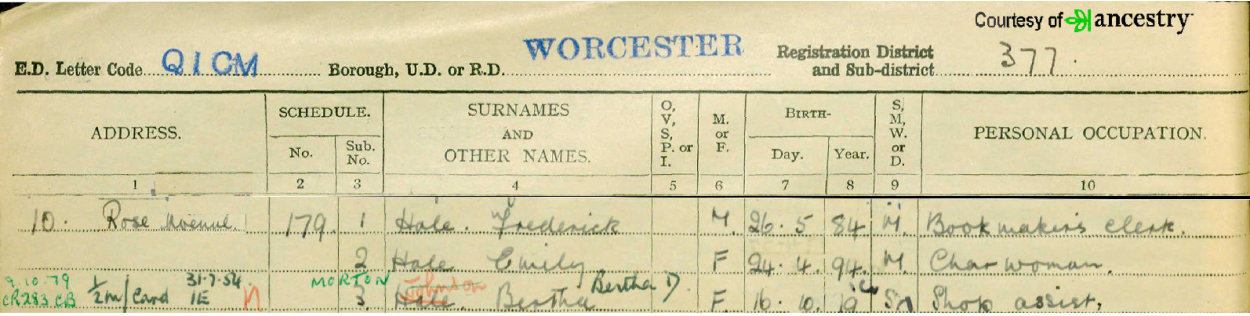 Courtesy of ancestry
E.D. Letter Code QICM Borough, U.D. or R.D. WORCESTER Registration District and Sub-district 377.
ADDRESS. SCHEDULE. No. Sub. No. SURNAMES AND OTHER NAMES. O, V, S, P. or I. M. or F. BIRTH- Day. Year. S, M, W. or D. PERSONAL OCCUPATION.
1 2 3 4 5 6 7 8 9 10
10. Rose Avenue 179. 1 Hale. Frederick M. 26.5 84 M. Bookmakers Clerk.
2 Hale Emily F 24.4. 94. M. Charwoman.
9.10.79 31.7.54 MORTON Johnson Bertha D.
CR283 CB 1/2m/Card 1E 3. Hale. Bertha F. 16.10. 19 S Shop assist,